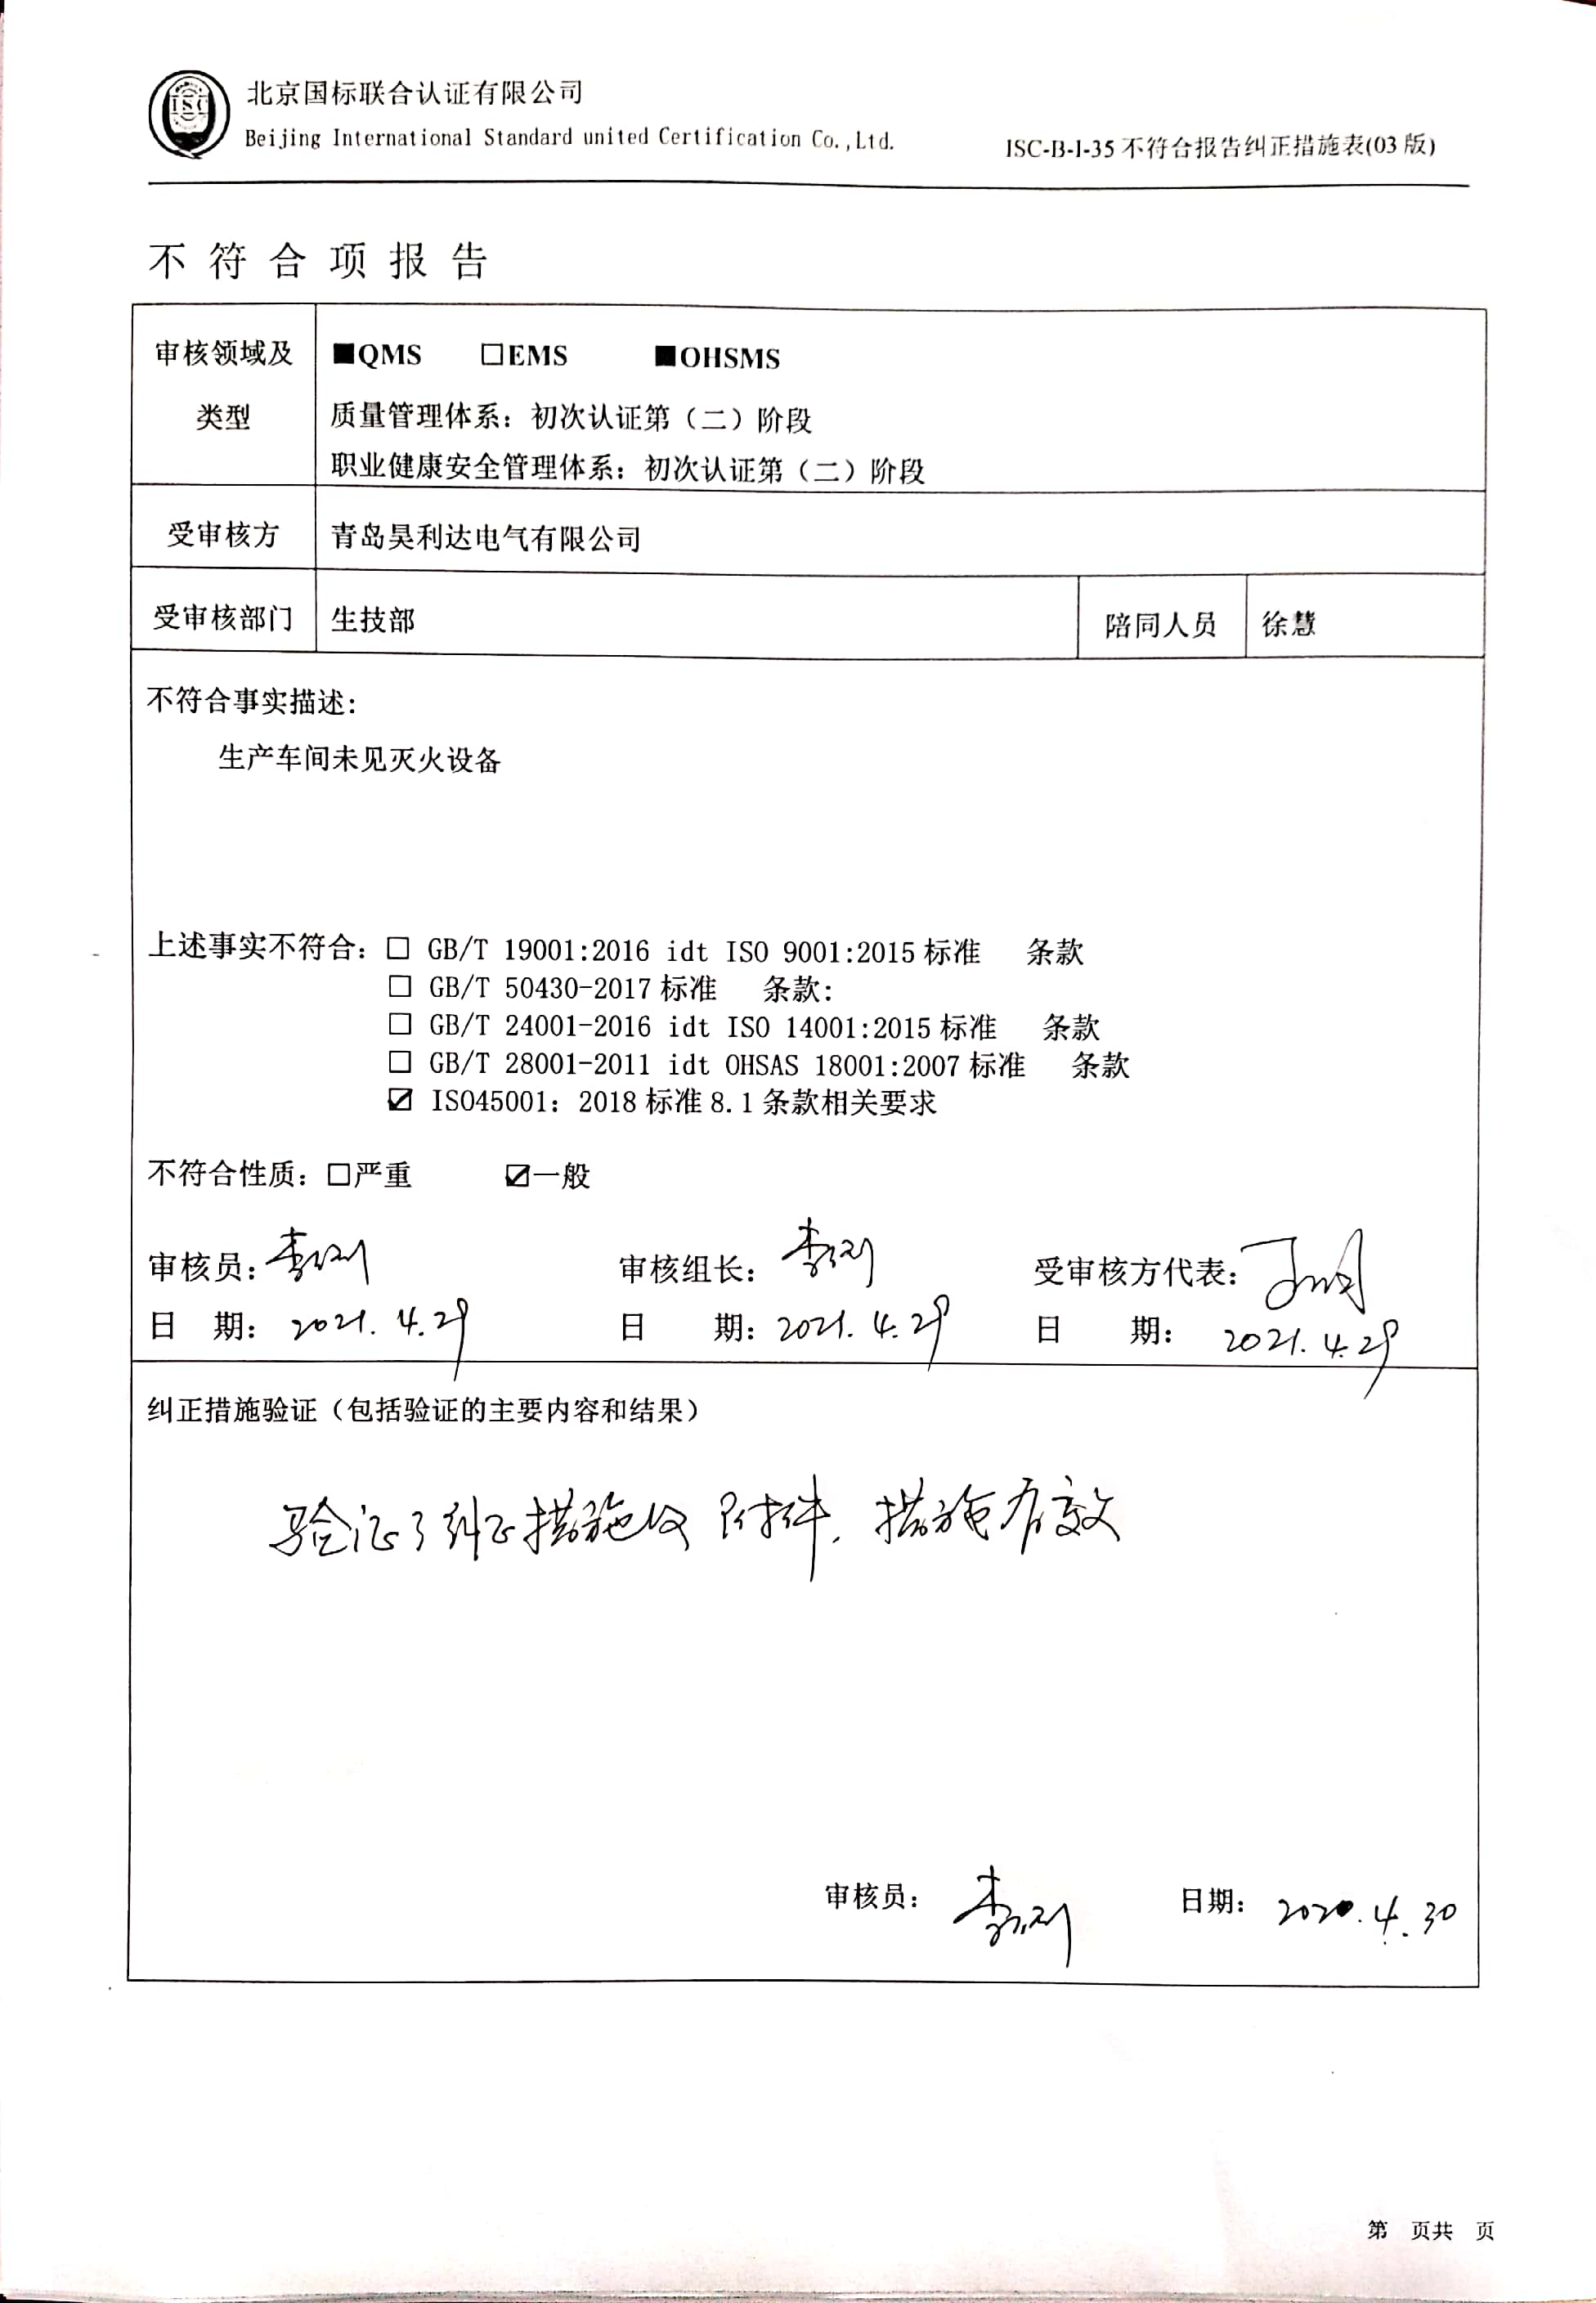 ISC
北京国标联合认证有限公司
Beijing International Standard united Certification Co.,Ltd.
ISC-B-I-35 不符合报告纠正措施表(03 版)
不符合项报告
审核领域及类型
■QMS □EMS ■OHSMS
质量管理体系：初次认证第（二）阶段
职业健康安全管理体系：初次认证第（二）阶段
受审核方 青岛昊利达电气有限公司
受审核部门 生技部 陪同人员 徐慧
不符合事实描述：
生产车间未见灭火设备
上述事实不符合：□ GB/T 19001:2016 idt ISO 9001:2015 标准 条款
□ GB/T 50430-2017 标准 条款：
□ GB/T 24001-2016 idt ISO 14001:2015 标准 条款
□ GB/T 28001-2011 idt OHSAS 18001:2007 标准 条款
☑ ISO45001：2018 标准 8.1 条款相关要求
不符合性质：□严重 ☑一般
审核员： 审核组长： 受审核方代表：
日 期：2021.4.29 日 期：2021.4.29 日 期：2021.4.29
纠正措施验证（包括验证的主要内容和结果）
验证了纠正措施及附件，措施有效
审核员： 日期：2020.4.30
第 页共 页